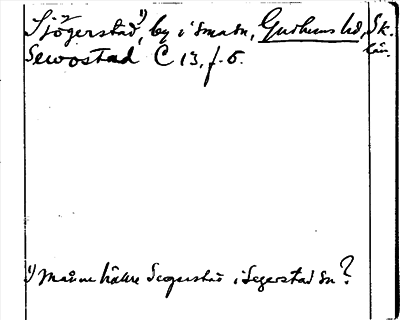 Sjögerstad¹⁾, by i smasn, Gudhems hd, Sk.
län.
Sewostad C 13, f. 6.
¹⁾ månne hällre Segerstad i Segerstad sn?